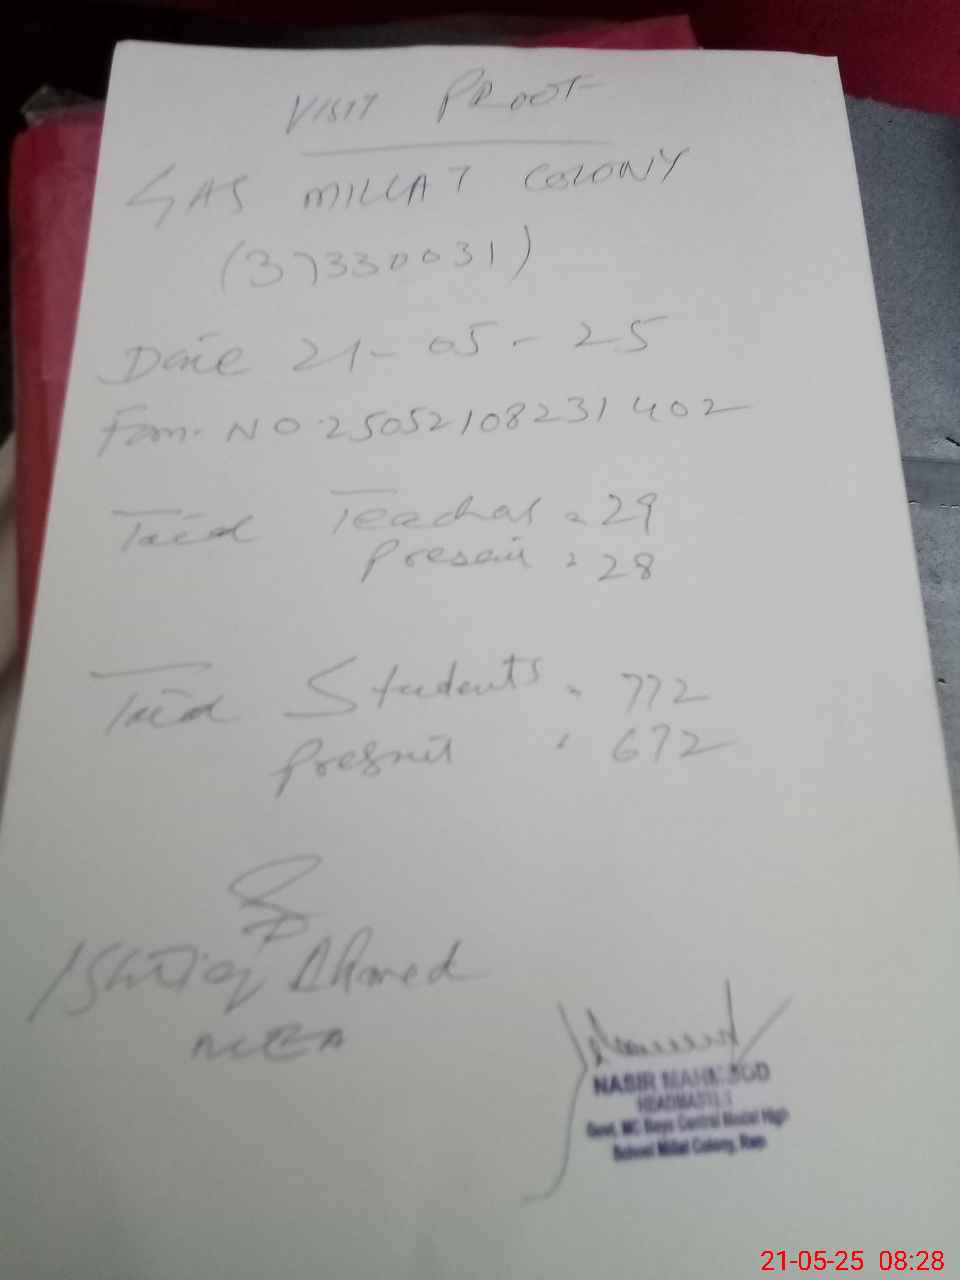 VISIT PROOF
GAS MILLAT COLONY
(37330031)
Date 21-05-25
Form. NO. 25052108231402
Total Teacher = 29
Present = 28
Total Students = 772
Present = 672
Ishtiaq Ahmed
MEA
NASIR MAHMOOD
HEADMASTER
Govt. MC Boys Central Model High
School Millat Colony, Rwp
21-05-25 08:28